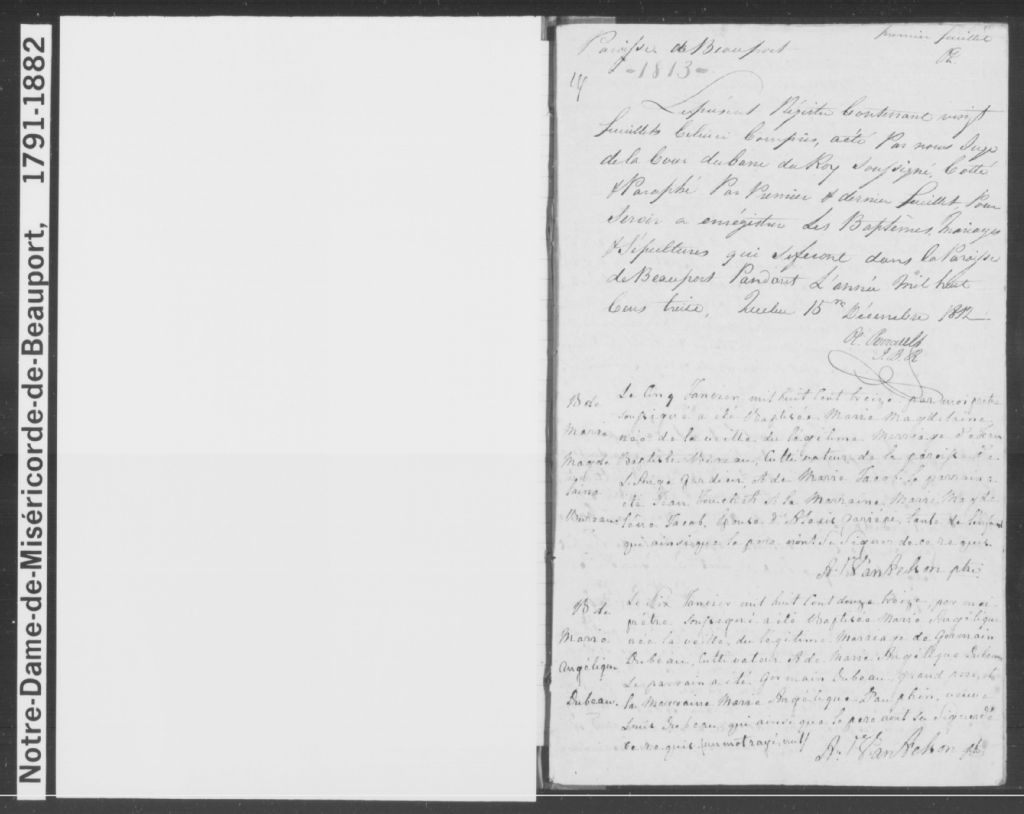 Notre-Dame-de-Miséricorde-de-Beauport, 1791-1882
Premier feuillet
Paroisse de Beauport
-1813-
Le présent Régistre Contenant vingt
feuillets Celuici Compris, a été Par nous Juge
de la Cour du banc du Roy Soussigné, Cotté
& Paraphé Par Premier & dernier feuillet, Pour
Servir a enrégistrer Les Baptêmes, Mariages
& Sépultures qui Se feront dans la Paroisse
de Beauport Pandant L'année Mil huit
Cens treize, Quebec 15 Décembre 1812
B de
Marie
Magde
laine
Le Cinq Janvier mil huit Cent treize par moi prêtre
soussigné a été Baptisée Marie Magdeleine
née de la veille du légitime Mariage de Jean
Baptiste Cultivateur de la paroisse de
L'Ange Gardien, & de Marie Jacob. le parrain a
été Jean & la Marraine Marie Magde
leine Jacob, Epouse d' tante de l'enfant
qui ainsi que le pere n'ont Su Signer de ce requis.
ptre
B de
Marie
Angélique
Dubeau.
Le Dix Janvier mil huit Cent douze treize, par moi
prêtre soussigné a été Baptisée Marie Angélique
née la veille, du légitime Mariage de Germain
Dubeau, Cultivateur & de Marie Angélique Dubeau
Le parrain a été Germain Dubeau, grand pere, et
la Marraine Marie Angélique Dauphin, veuve
Louis Dubeau, qui ainsi que le pere n'ont Su Signer de
ce requis (un mot rayé, nul)
ptre